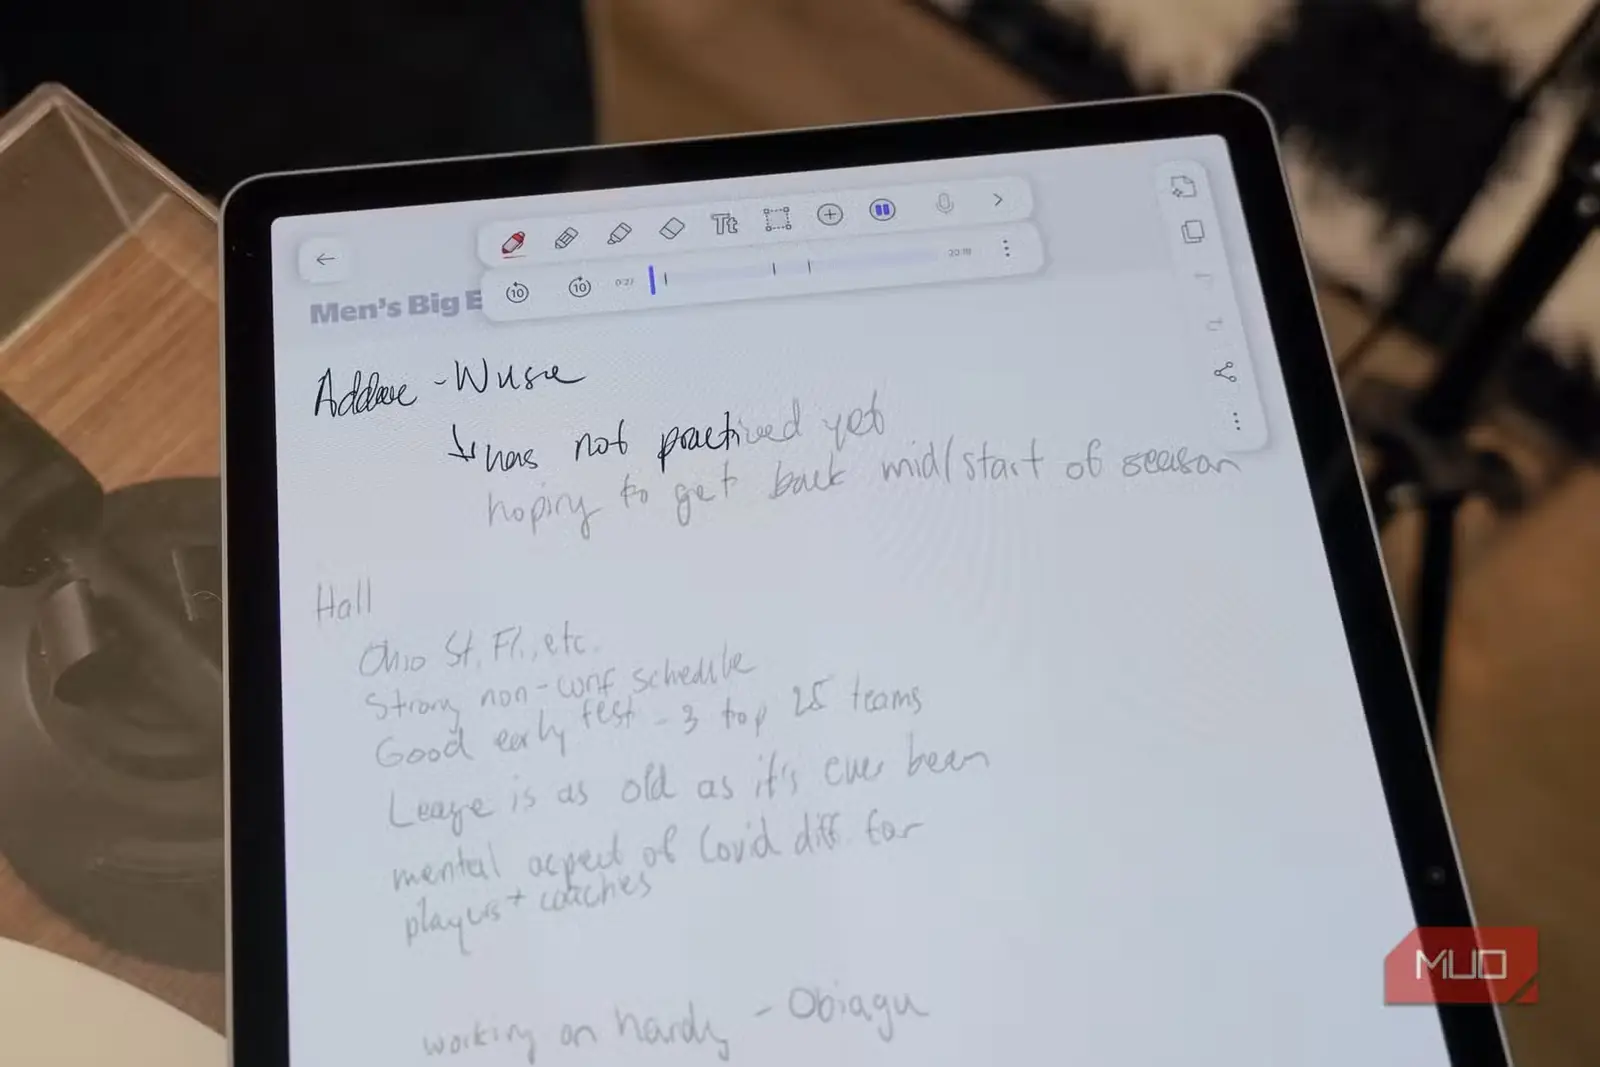 Tt
10 10 0:27 20:19
Men's Big E
Addae-Wusu
↳ has not practiced yet
hoping to get back mid/start of season
Hall
Ohio St, Fl., etc.
Strong non-conf schedule
Good early test - 3 top 25 teams
League is as old as it's ever been
mental aspect of Covid diff. for
players + coaches
working on hands - Obiagu
MUO